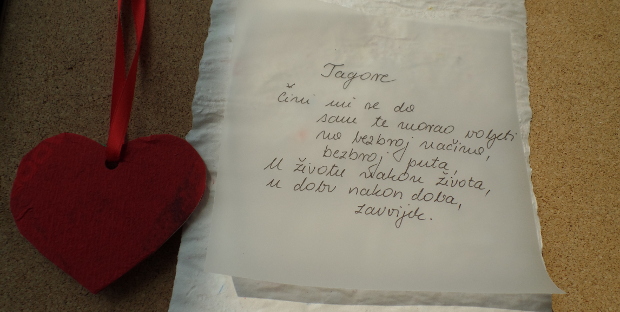 Tagore
Čini mi se da
sam te morao voljeti
na bezbroj načina,
bezbroj puta,
U životu nakon života,
u dobu nakon doba,
zauvijek.